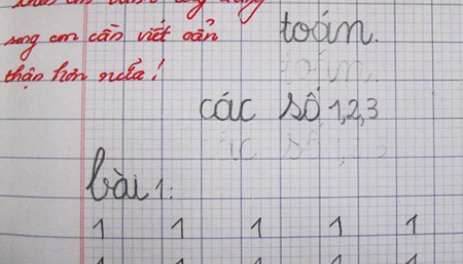 song em cần viết cẩn
thận hơn nữa!
toán.
các số 1,2,3
bài 1:
1 1 1 1 1